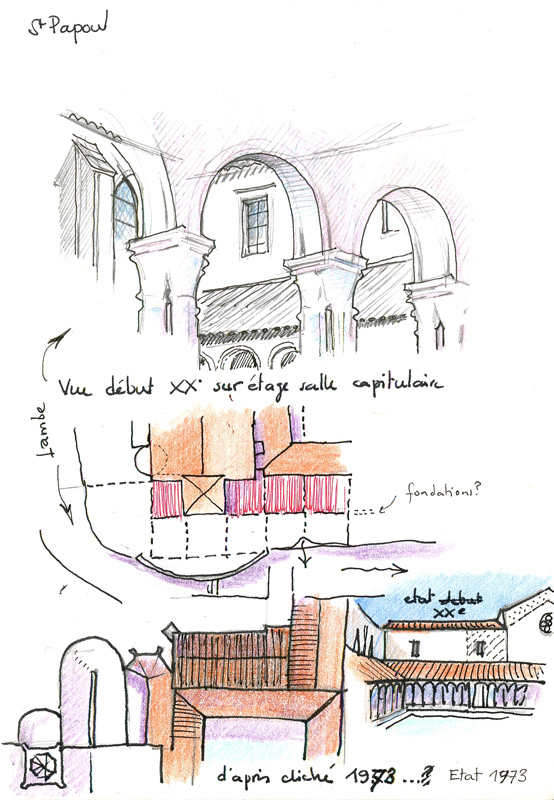 St Papoul
Vue début XX. sur étage salle capitulaire
tambe
fondations?
etat debut
XXe
d'après cliché 1973 ...?
Etat 1973